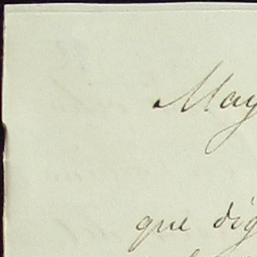 May
que dig